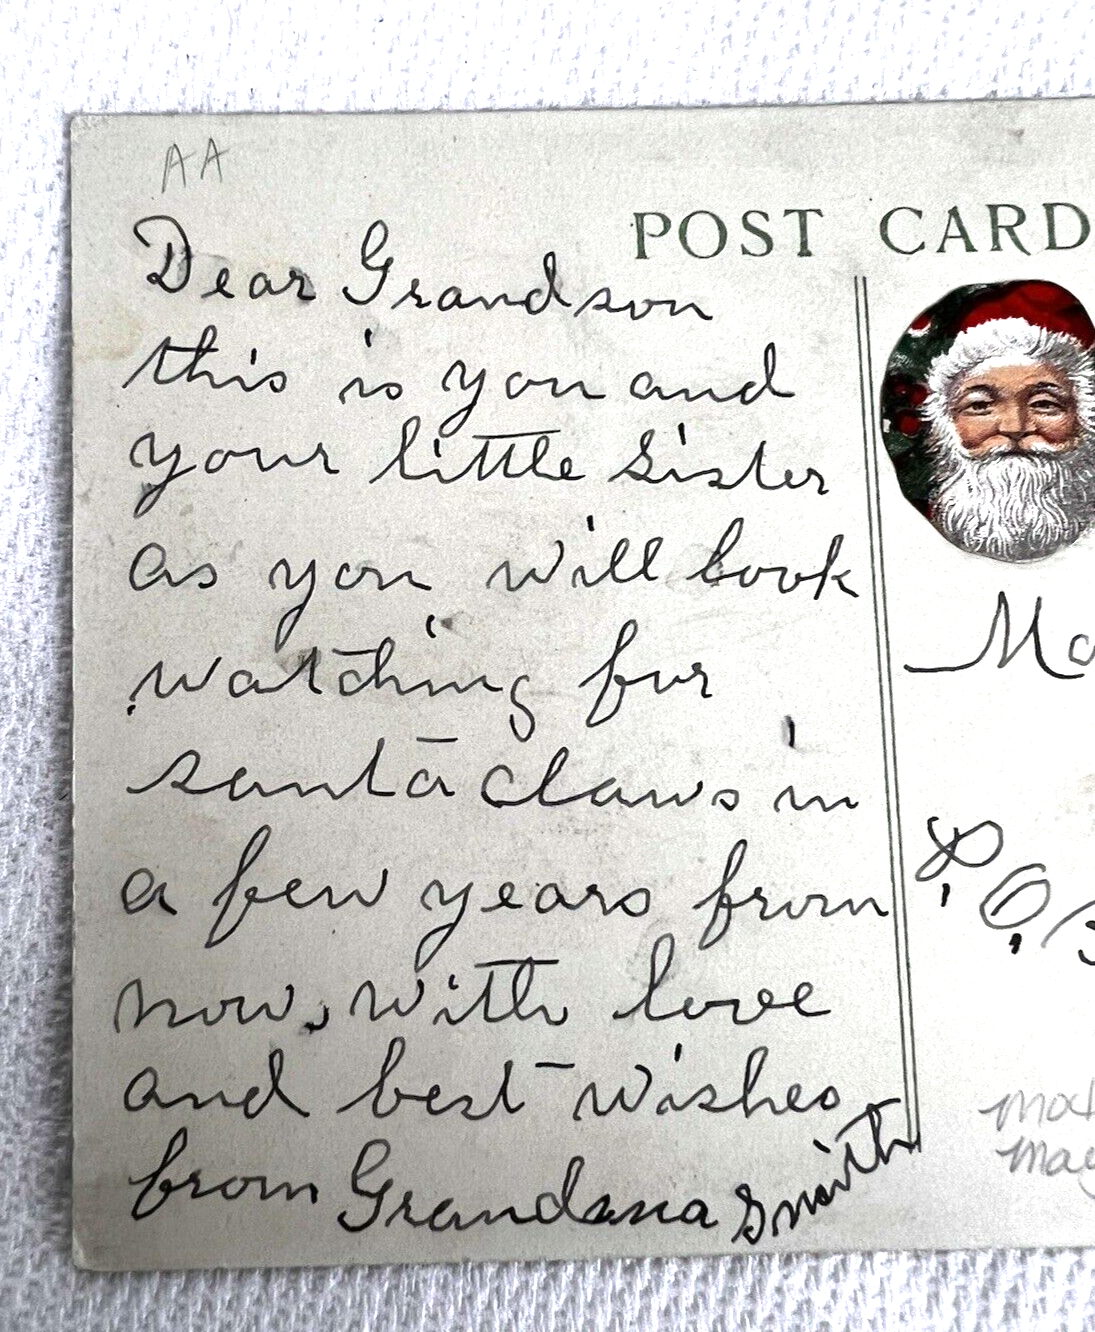 AA
POST CARD
Dear Grandson
this is you and
your little sister
as you will look
watching for
santa claws in
a few years from
now, with love
and best wishes
from Grandma Smith
P.O.